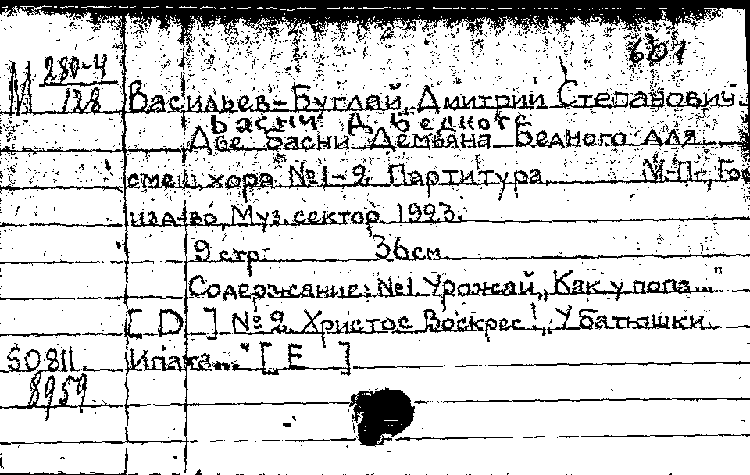 601
М 280-4
128
Васильев-Буглай, Дмитрий Степанович.
Басни Д. Бедного
Две басни Демьяна Бедного для
смеш. хора №1-2. Партитура. М.-П., Гос
изд-во, Муз. сектор 1923.
9 стр. 36 см.
Содержание: №1. Урожай „Как у попа..."
[D] №2. Христос Воскрес! „У батюшки
Ипата..." [E]
50811.
8959